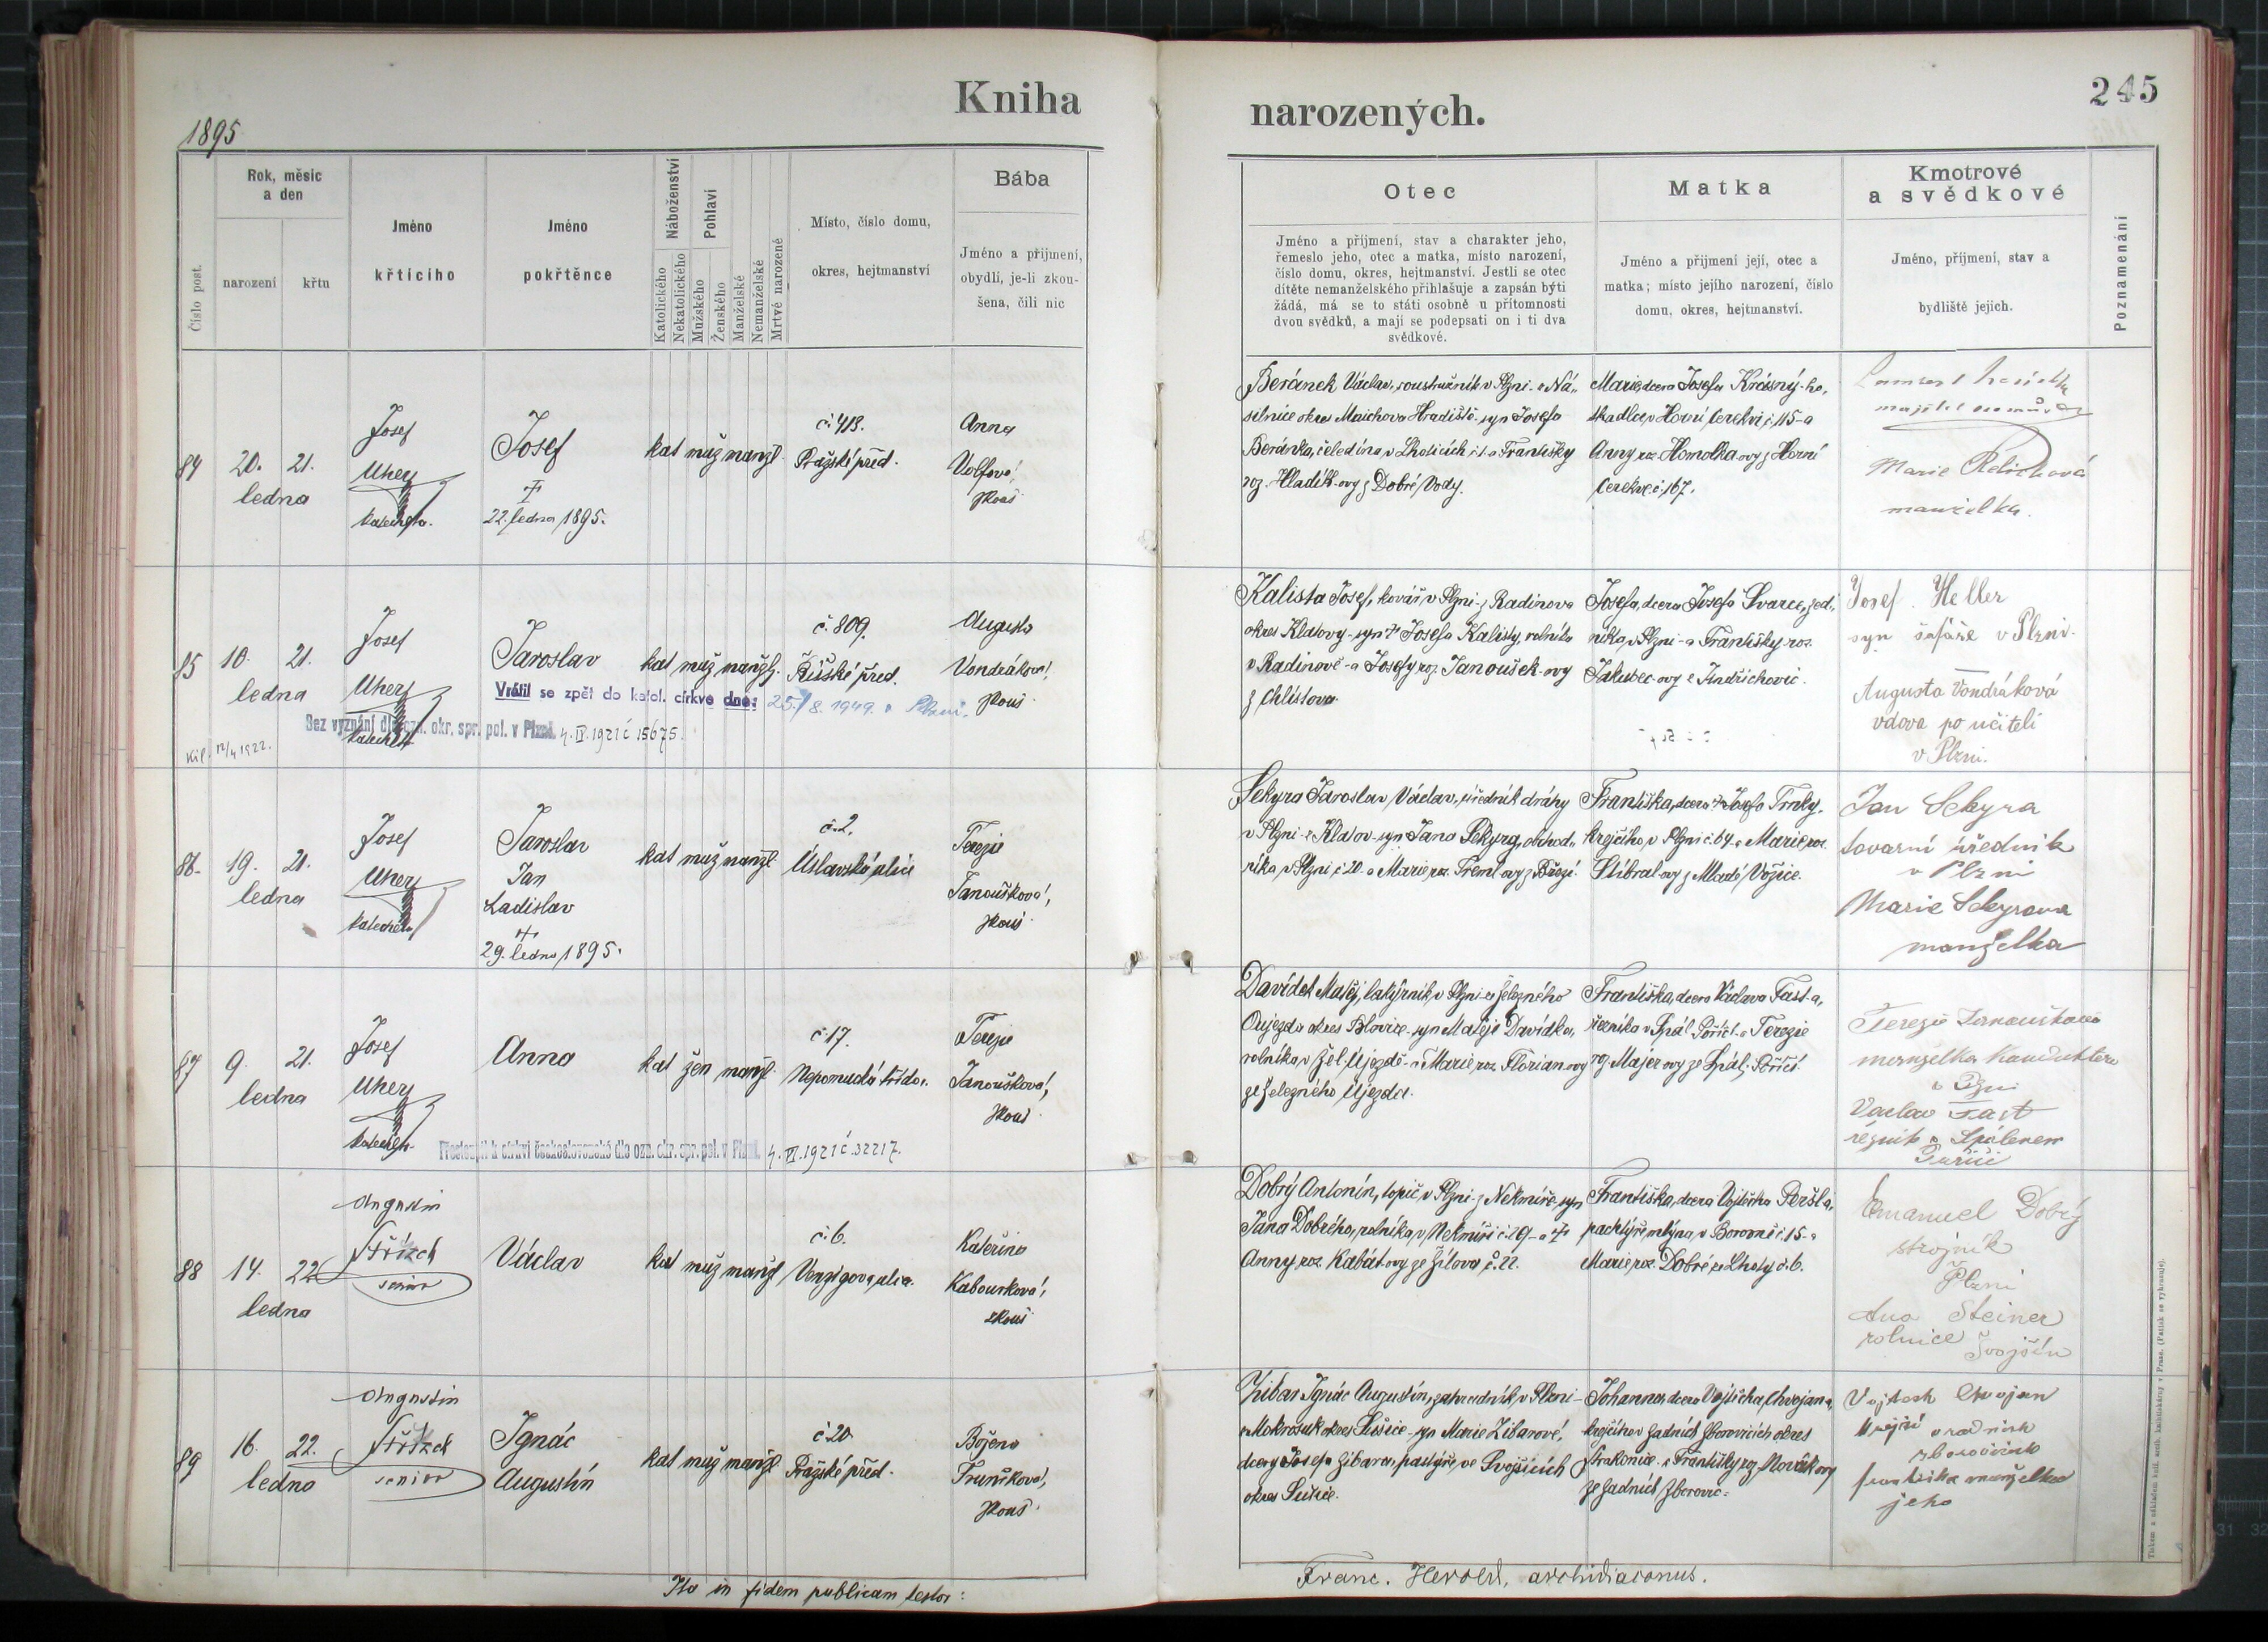 Kniha
narozených.
245
1895
Číslo post.
Rok, měsíc
a den
narození
křtu
Jméno
křtícího
Jméno
pokřtěnce
Náboženství
Katolického
Nekatolického
Pohlaví
Mužského
Ženského
Manželské
Nemanželské
Mrtvé narozené
Místo, číslo domu,
okres, hejtmanství
Bába
Jméno a přijmení,
obydlí, je-li zkou-
šena, čili nic
Otec
Jméno a příjmení, stav a charakter jeho,
řemeslo jeho, otec a matka, místo narození,
číslo domu, okres, hejtmanství. Jestli se otec
dítěte nemanželského přihlašuje a zapsán býti
žádá, má se to státi osobně u přítomnosti
dvou svědků, a mají se podepsati on i ti dva
svědkové.
Matka
Jméno a přijmení její, otec a
matka; místo jejího narození, číslo
domu, okres, hejtmanství.
Kmotrové
a svědkové
Jméno, příjmení, stav a
bydliště jejich.
Poznamenání
84
20. 21.
ledna
Josef
Uher
katecheta.
Josef
†
22. ledna 1895.
kat muž manž.
č. 413.
Pražské před.
Anna
Volfová,
zkouš.
Beránek Václav, soustružník v Plzni - z Ná-
silnice okres Mnichovo Hradiště - syn Josefa
Beránka, čeledína v Lhoticích č. 1. a Františky
roz. Hladík-ovy z Dobré Vody.
Marie, dcera Josefa Krásný-ho,
tkadlce v Horní Cerekvi č. 115 - a
Anny roz. Homolka-ovy z Horní
Cerekve č. 167.
majitel domů
Marie
manželka.
85
10. 21.
ledna
Josef
Uher
katecheta
Jaroslav
Vrátil se zpět do katol. církve dne: 25./8. 1949. v Plzni.
Bez vyznání dle ozn. okr. spr. pol. v Plzni. 4. IV. 1921 č 15675.
12/4 1922.
kat muž manž.
č. 809.
Říšské před.
Augusta
Vondráková,
zkouš.
Kalista Josef, kovář v Plzni - z Radinova
okres Klatovy - syn † Josefa Kalisty, rolníka
v Radinově - a Josefy roz. Janoušek-ovy
z Chlistova.
Josefa, dcera Josefa Švarce, zed-
níka v Plzni - a Františky roz.
Jakubec-ovy z Jindřichovic.
Josef Heller
syn šafáře v Plzni.
Augusta Vondráková
vdova po učiteli
v Plzni.
86.
19. 21.
ledna
Josef
Uher
katecheta
Jaroslav
Jan
Ladislav
†
29. ledna 1895.
kat muž manž.
č. 2.
Úslavská ulice
Terezie
Janoušková,
zkouš.
Sekyra Jaroslav Václav, úředník dráhy
v Plzni - z Klatov - syn Jana Sekyry, obchod-
níka v Plzni č. 20. a Marie roz. Treml-ovy z Březí.
Františka, dcera † Josefa Trnky,
krejčího v Plzni č. 64. a Marie roz.
Stibral-ovy z Mladé Vožice.
Jan Sekyra
tovární úředník
v Plzni
Marie Sekyrova
manželka
87
9. 21.
ledna
Josef
Uher
katecheta
Anna
Přestoupil k církvi československé dle ozn. okr. spr. pol. v Plzni. 4. VI. 1921 č. 32217.
kat žen manž.
č. 17.
Nepomucká třída.
Terezie
Janoušková,
zkouš.
Davídek Matěj, lakýrník v Plzni - ze Železného
Oujezda okres Blovice - syn Matěje Davídka,
rolníka v Žel. Újezdě - a Marie roz. Florian-ovy
ze Železného Újezda.
Františka, dcera Václava Fast-a,
řezníka v Spál. Poříčí - a Terezie
roz. Majer-ovy ze Spál. Poříčí.
Terezie Janoušková
manželka konduktera
v Plzni
Vaclav Fast
řezník v Spáleném
Poříčí
88
14. 22.
ledna
Augustin
senior
Václav
kat muž manž.
č. 6.
Venzigova ulice.
Kateřina
Kabourková,
zkouš.
Dobrý Antonín, topič v Plzni - z Nekmíře - syn
Jana Dobrého, rolníka v Nekmíři č. 29 - a †
Anny roz. Kabát-ovy ze Žilova č. 22.
Františka, dcera Vojtěcha Peršl-a,
pachtýře mlýna v Borovně č. 15 - a
Marie roz. Dobré ze Lhoty č. 6.
Emanuel Dobrý
strojník
Plzni
Ana Steiner
rolnice Svojšín
89
16. 22.
ledna
Augustin
senior
Ignác
Augustín
kat muž manž.
č. 20
Pražské před.
Božena
Truníková,
zkouš.
Zibar Ignác Augustín, zahradník v Plzni -
z Mokrosuk okres Sušice - syn Marie Zibarové,
dcery Josefa Zibara, pastýře ve Svojšicích
okres Sušice.
Johanna, dcera Vojtěcha Chvojana,
krejčího v Zadních Zborovicích okres
Strakonice - a Františky roz. Novák-ovy
ze Zadních Zborovic.
Vojtěch Chvojan
krejčí v zadnich
zborovicich
františka manželka
jeho
Ita in fidem publicam testor:
Franc. Herold, archidiaconus.